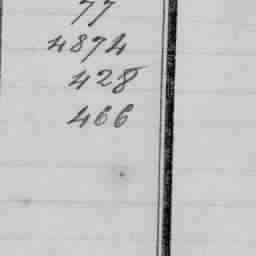 77
4874
428
466